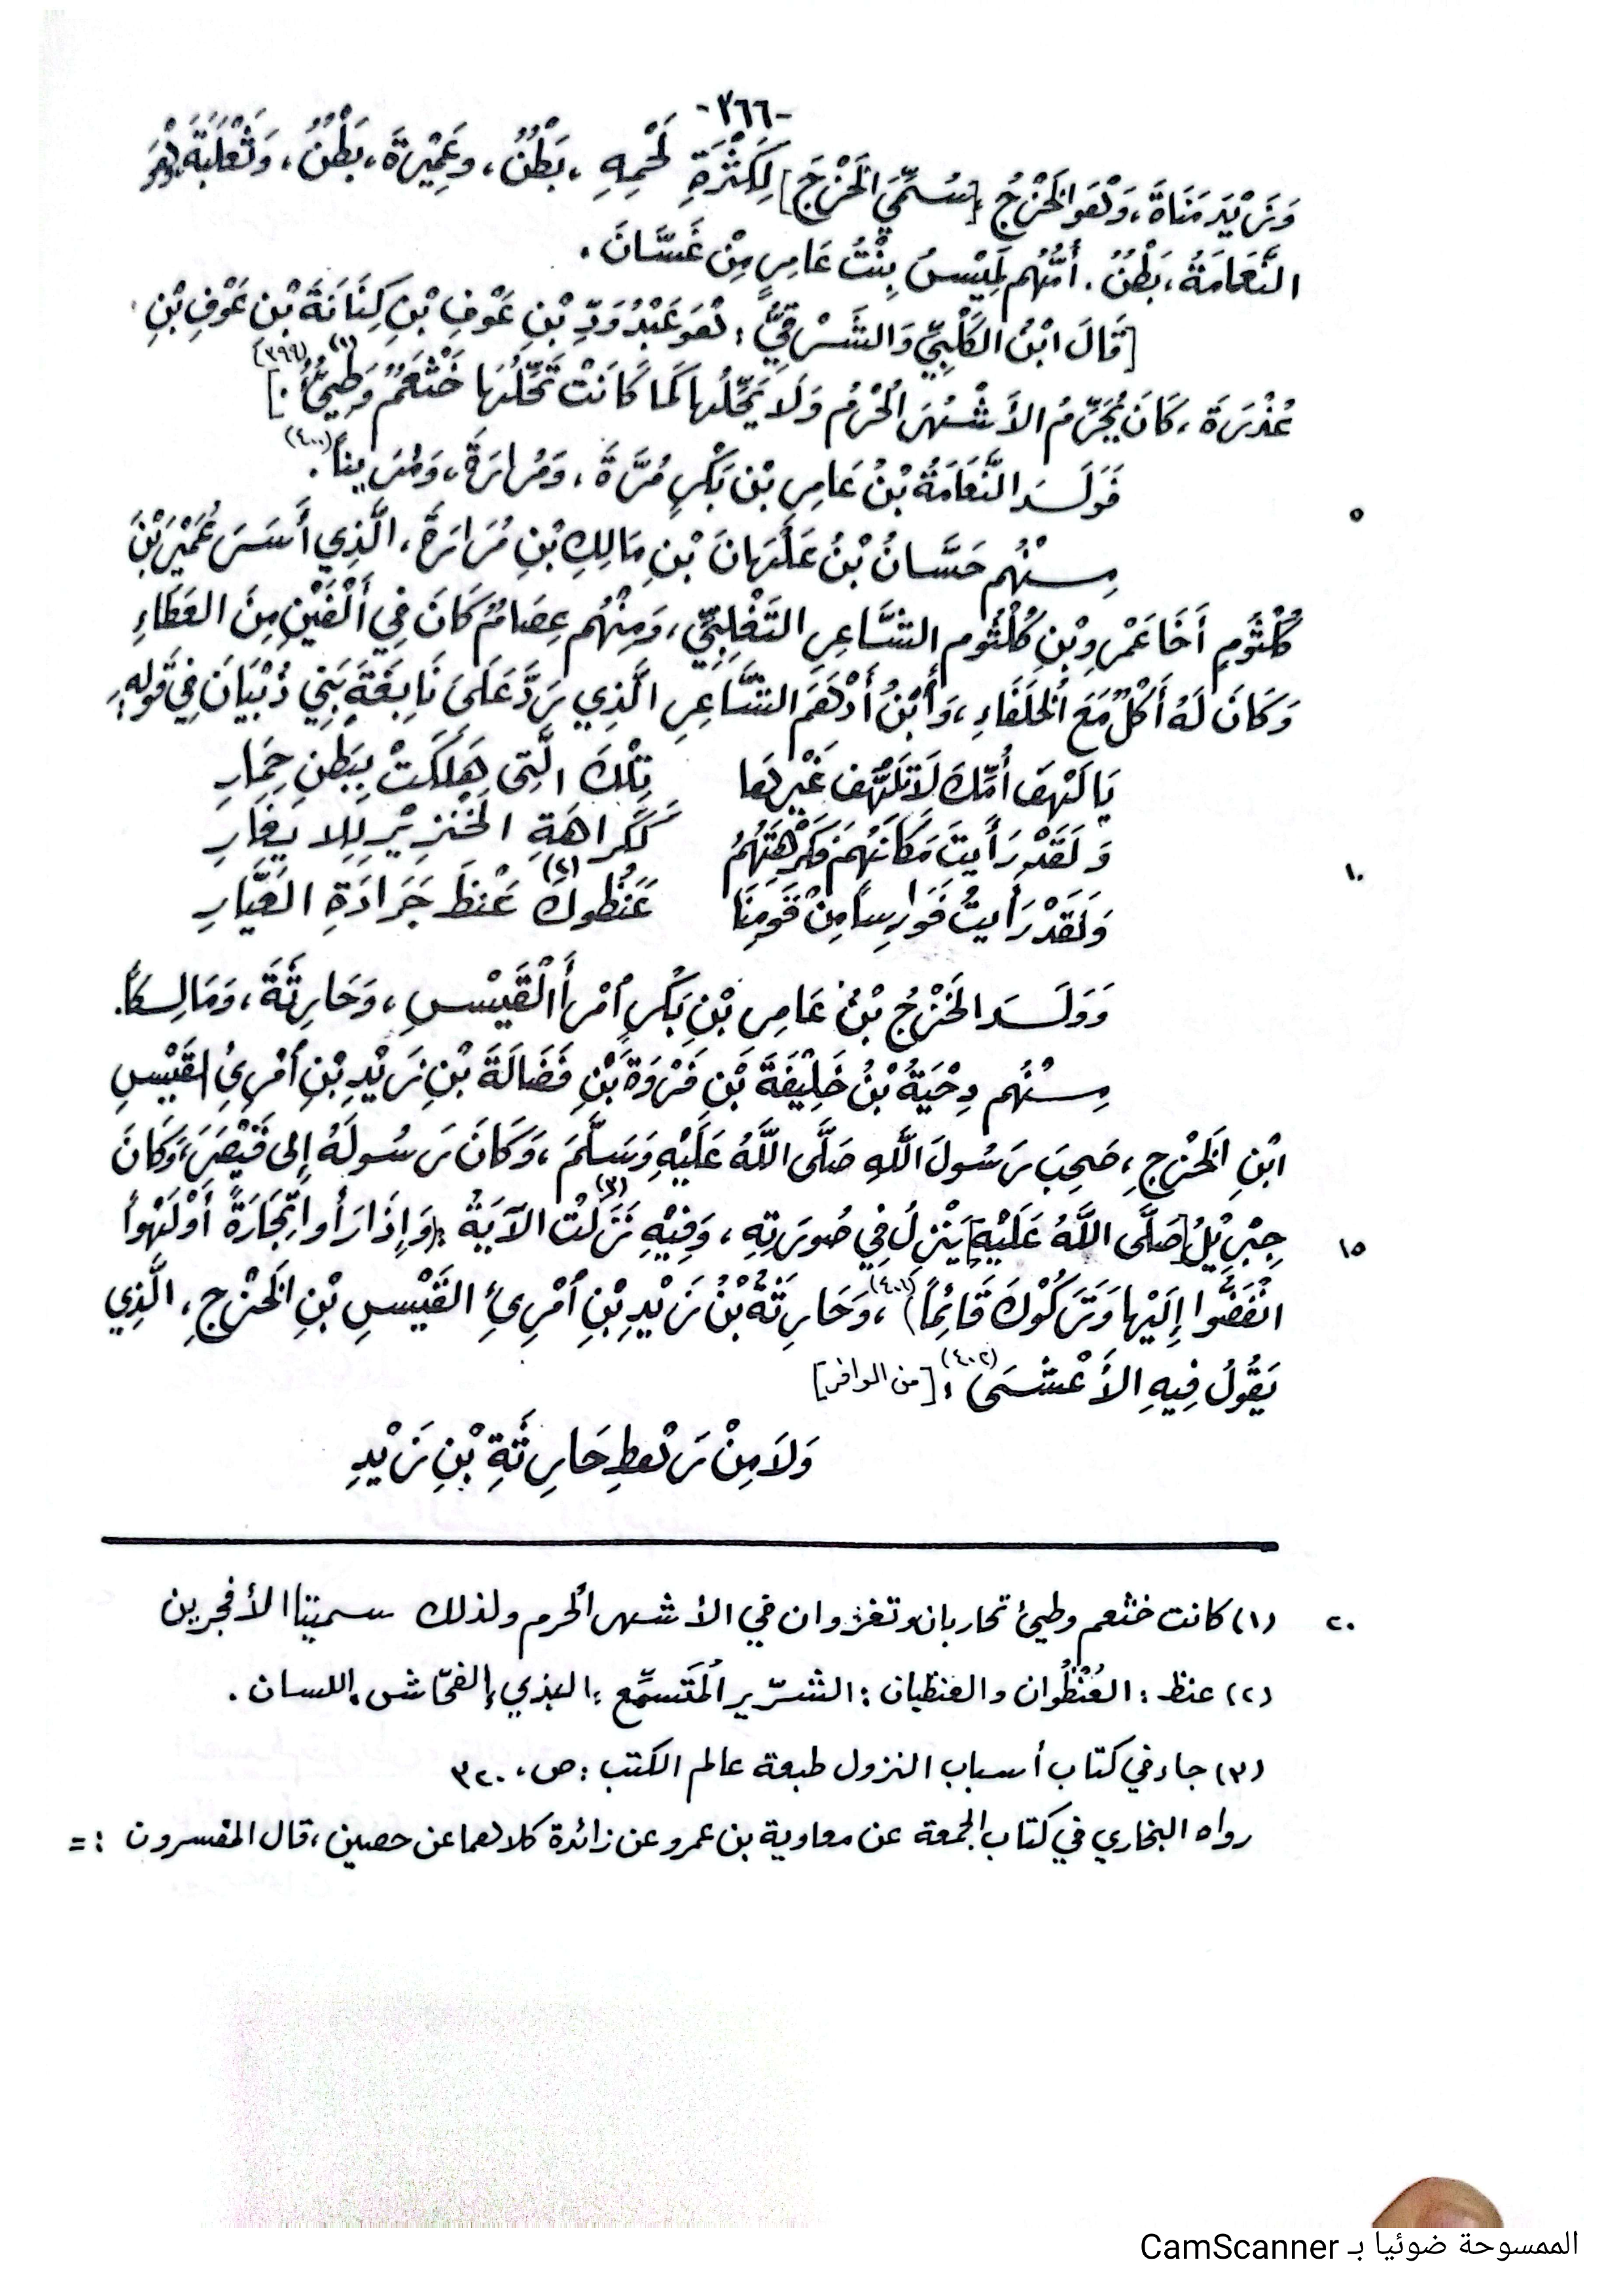 -٣٦٦-
وَزَيْدَ مَنَاةَ، وَهُوَ الخَزْرَجُ [سُمِّيَ الخَزْرَجَ] لِكَثْرَةِ لَحْمِهِ، بَطْنٌ، وعَمِيْرَةَ، بَطْنٌ، وَثَعْلَبَةَ وَهُوَ
النَّعَامَةُ، بَطْنٌ. أُمُّهُم لَمِيْسُ بِنْتُ عَامِرٍ مِنْ غَسَّانَ.
[قَالَ ابْنُ الكَلْبِيِّ وَالشَّرْقِيُّ: هُوَ عَبْدُ وَدِّ بْنِ عَوْفِ بْنِ كِنَانَةَ بْنِ عَوْفِ بْنِ
عُذْرَةَ، كَانَ يُحَرِّمُ الأَشْهُرَ الْحُرُمُ وَلَا يَحِّلُها كَمَا كَانَتْ تَحِّلُهَا خَثْعَمٌ وَطَيِّءُ(١).](٣٩٩)
فَوَلَدَ النَّعَامَةُ بْنُ عَامِرِ بْنِ بَكْرٍ مُرَّةَ، وَمُرارَةَ، وَمُرَيناً(٤٠٠).
٥
مِنْهُم حَسَّانُ بْنُ عَلَهَانَ بْنِ مَالِكِ بْنِ مُرَارَةَ، الَّذِي أَسَرَ عُمَيْرَ بْنَ
كُلْثُومٍ أَخَا عَمْرِو بْنِ كُلْثُومِ الشَّاعِرِ التَّغْلِبِيِّ، وَمِنْهُم عِصَامٌ كَانَ فِي أَلْفَيْنِ مِنَ العَطَاءِ
وَكَانَ لَهُ أَكْلٌ مَعَ الْخُلَفَاءِ، وَأَبْنُ أَدْهَمَ الشَّاعِرِ الَّذِي رَدَّ عَلَىَ نَابِغَةِ بَنِي ذُبْيَانَ فِي قَولِهِ:
يَا لَهْفَ أُمِّكَ لَا تَلَهُّفَ غَيْرِهَا تِلْكَ الَّتِى هَلَكَتْ بِبَطْنِ حِمَارِ
وَلَقَدْ رَأَيتَ مَكَانَهُمْ فَكَرِهْتَهُمُ كَكَراهَةِ الخِنْزِيْرِ لِلايغَارِ
١٠
وَلَقَدْ رَأَيتُ فَوَارِساً مِنْ قَومِنَا غَنَظُوكَ(٢) غَنْظَ جَرَادَةِ العَيَّارِ
وَوَلَدَ الخَزْرَجُ بْنُ عَامِرِ بْنِ بَكْرٍ اْمْرأَ القَيْسِ، وَحَارِثَةَ، وَمَالِكاً.
مِنْهُم دِحْيَةُ بْنُ خَلِيْفَةَ بْنِ فَرْوَةَ بْنِ فَضَالَةَ بْنِ زَيْدِ بْنِ اْمْرِئِ القَيْسِ
ابْنِ الخَزْرَجِ، صَحِبَ رَسُولَ اللَّهِ صَلَّى اللَّهُ عَلَيْهِ وَسَلَّمَ، وَكَانَ رَسُولَهُ إِلى قَيْصَرَ، وَكَانَ
١٥
جِبْرِيْلُ [صَلَّى اللَّهُ عَلَيْهِ] يَنْزِلُ فِي صُورَتِهِ، وَفِيْهِ نَزَلَتْ(٣) الآيَةُ: (وَإِذَا رَأَوا تِجَارَةً أَوْ لَهْواً
انْفَضُّوا إِلَيْها وَتَرَكُوْكَ قَائِمًا)(٤٠١)، وَحَارِثَةُ بْنُ زَيْدِ بْنِ اْمْرِئِ القَيْسِ بْنِ الخَزْرَجِ، الَّذِي
يَقُولُ فِيهِ الأَعْشَى(٤٠٢): [من الوافر]
وَلَا مِنْ رَهْطِ حَارِثَةِ بْنِ زَيْدِ
٢٠
(١) كانت خثعم وطيئ تحاربان وتغزوان في الأشهر الحرم ولذلك سميتا الأفجرين
(٢) عنظ: العُنْظُوان والعنظيان: الشرّير المُتَسمِّع، البذيء الفحّاش اللسان.
(٣) جاء في كتاب أسباب النزول طبعة عالم الكتب: ص، ٣٢٠
رواه البخاري في كتاب الجمعة عن معاوية بن عمرو عن زائدة كلاهما عن حصين، قال المفسرون: =
الممسوحة ضوئيا بـ CamScanner